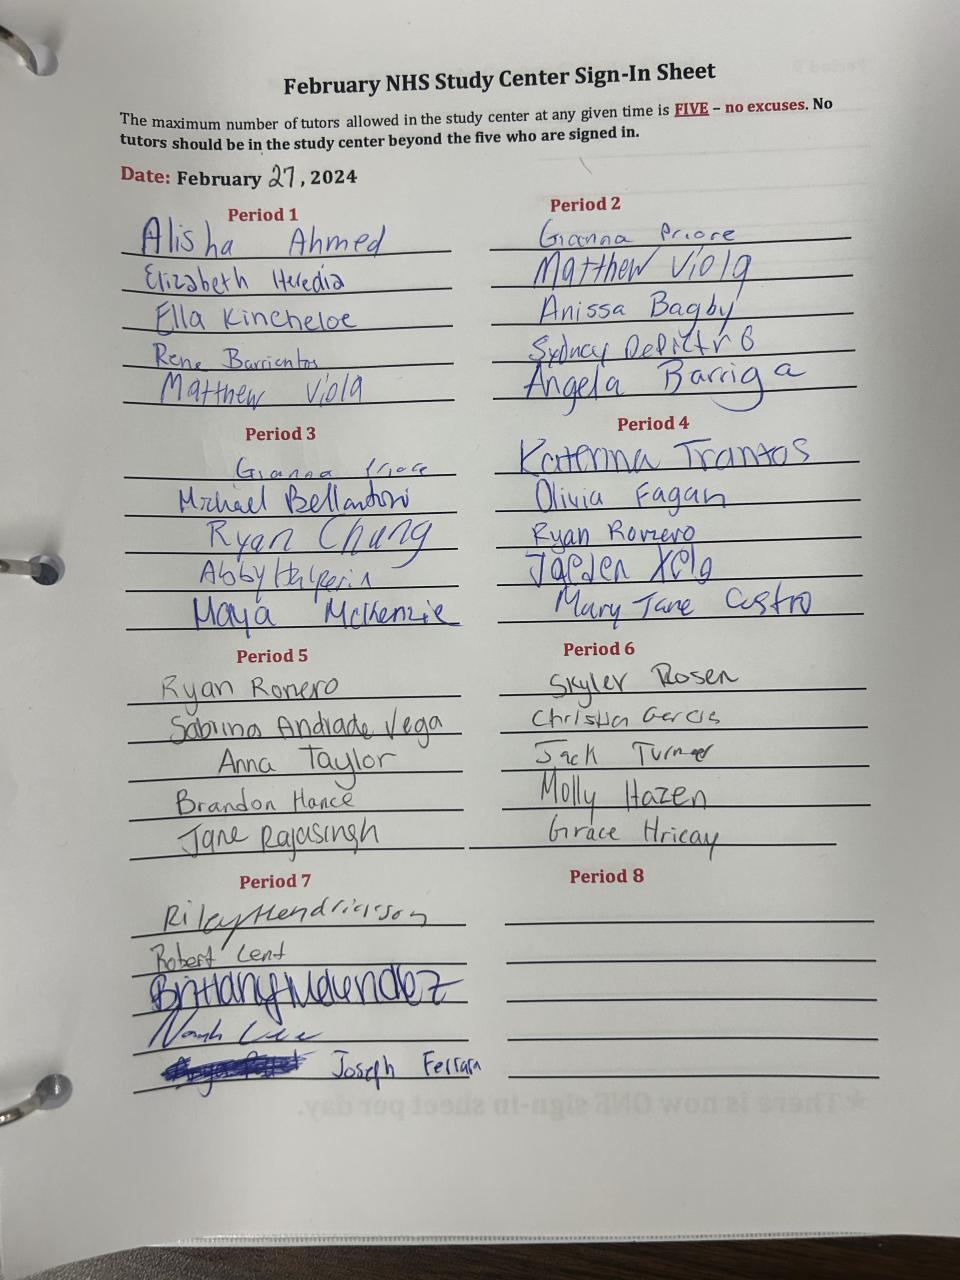 February NHS Study Center Sign-In Sheet
The maximum number of tutors allowed in the study center at any given time is FIVE – no excuses. No
tutors should be in the study center beyond the five who are signed in.
Date: February 27, 2024
Period 1
Alisha Ahmed
Elizabeth Heredia
Ella Kincheloe
Rene Barrientos
Matthew Viola
Period 2
Gianna Priore
Matthew Viola
Anissa Bagby
Sydney
Angela Barriga
Period 3
Gianna Priore
Michael Bellantoni
Ryan Chung
Abby Halperin
Maya McKenzie
Period 4
Katerina Trantos
Olivia Fagan
Ryan Romero
Jaeden
Mary Jane Castro
Period 5
Ryan Romero
Sabrina Andrade Vega
Anna Taylor
Brandon Hance
Jane Rajasingh
Period 6
Skyler Rosen
Christian Garcia
Jack Turner
Molly Hazen
Grace Hricay
Period 7
Riley Hendrickson
Robert Lent
Brittany Melendez
Noah Lee
Joseph Ferrara
Period 8
★There is now ONE sign-in sheet per day.